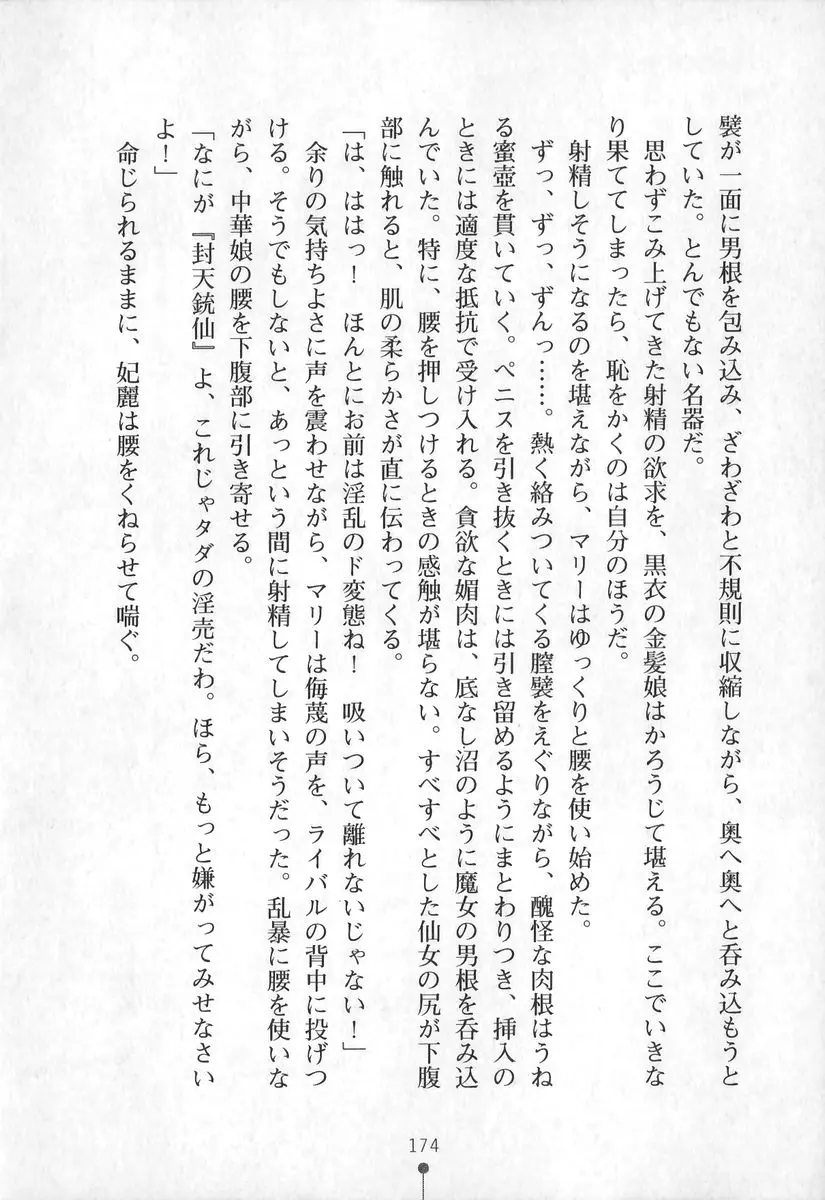 襞が一面に男根を包み込み、ざわざわと不規則に収縮しながら、奥へ奥へと呑み込もうと
していた。とんでもない名器だ。
思わずこみ上げてきた射精の欲求を、黒衣の金髪娘はかろうじて堪える。ここでいきな
り果ててしまったら、恥をかくのは自分のほうだ。
射精しそうになるのを堪えながら、マリーはゆっくりと腰を使い始めた。
ずっ、ずっ、ずんっ……。熱く絡みついてくる膣襞をえぐりながら、醜怪な肉根はうね
る蜜壺を貫いていく。ペニスを引き抜くときには引き留めるようにまとわりつき、挿入の
ときには適度な抵抗で受け入れる。貪欲な媚肉は、底なし沼のように魔女の男根を呑み込
んでいた。特に、腰を押しつけるときの感触が堪らない。すべすべとした仙女の尻が下腹
部に触れると、肌の柔らかさが直に伝わってくる。
「は、ははっ！　ほんとにお前は淫乱のド変態ね！　吸いついて離れないじゃない！」
余りの気持ちよさに声を震わせながら、マリーは侮蔑の声を、ライバルの背中に投げつ
ける。そうでもしないと、あっという間に射精してしまいそうだった。乱暴に腰を使いな
がら、中華娘の腰を下腹部に引き寄せる。
「なにが『封天銃仙』よ、これじゃタダの淫売だわ。ほら、もっと嫌がってみせなさい
よ！」
命じられるままに、妃麗は腰をくねらせて喘ぐ。
174